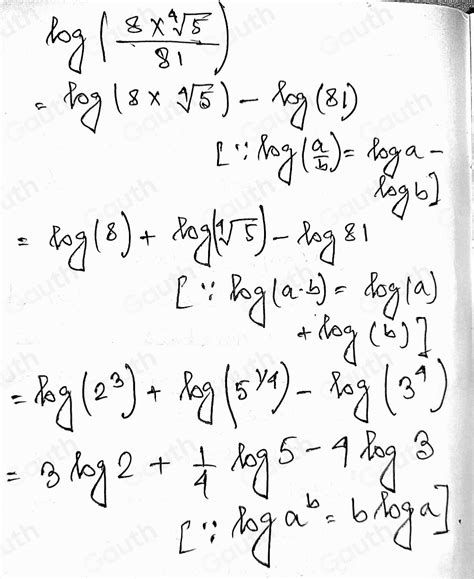 log(8×∜5/81)
= log(8×∜5) − log(81)
[∵ log(a/b)= log a −
log b]
= log(8) + log(∜5) − log 81
[∵ log(a·b) = log(a)
+ log(b)]
= log(2³) + log(5^1/4) − log(3⁴)
= 3 log 2 + 1/4 log 5 − 4 log 3
[∵ log a^b = b log a].